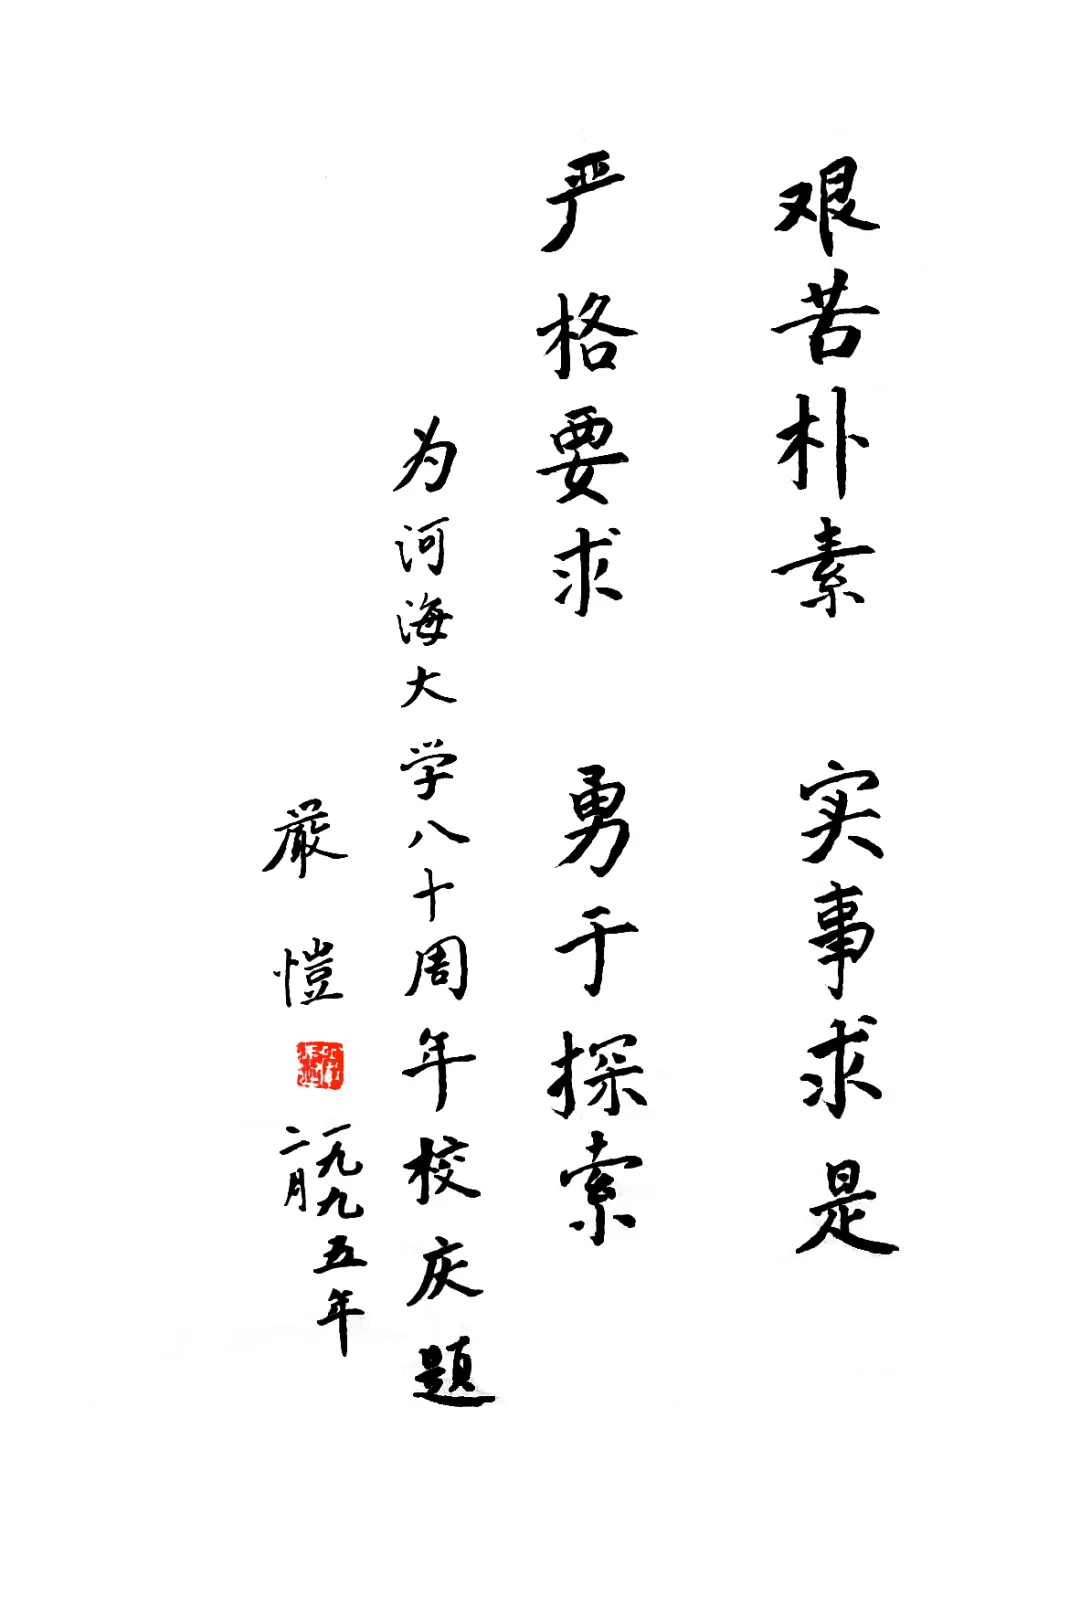 艰苦朴素 实事求是
严格要求 勇于探索
为河海大学八十周年校庆题
嚴愷
一九九五年
二月